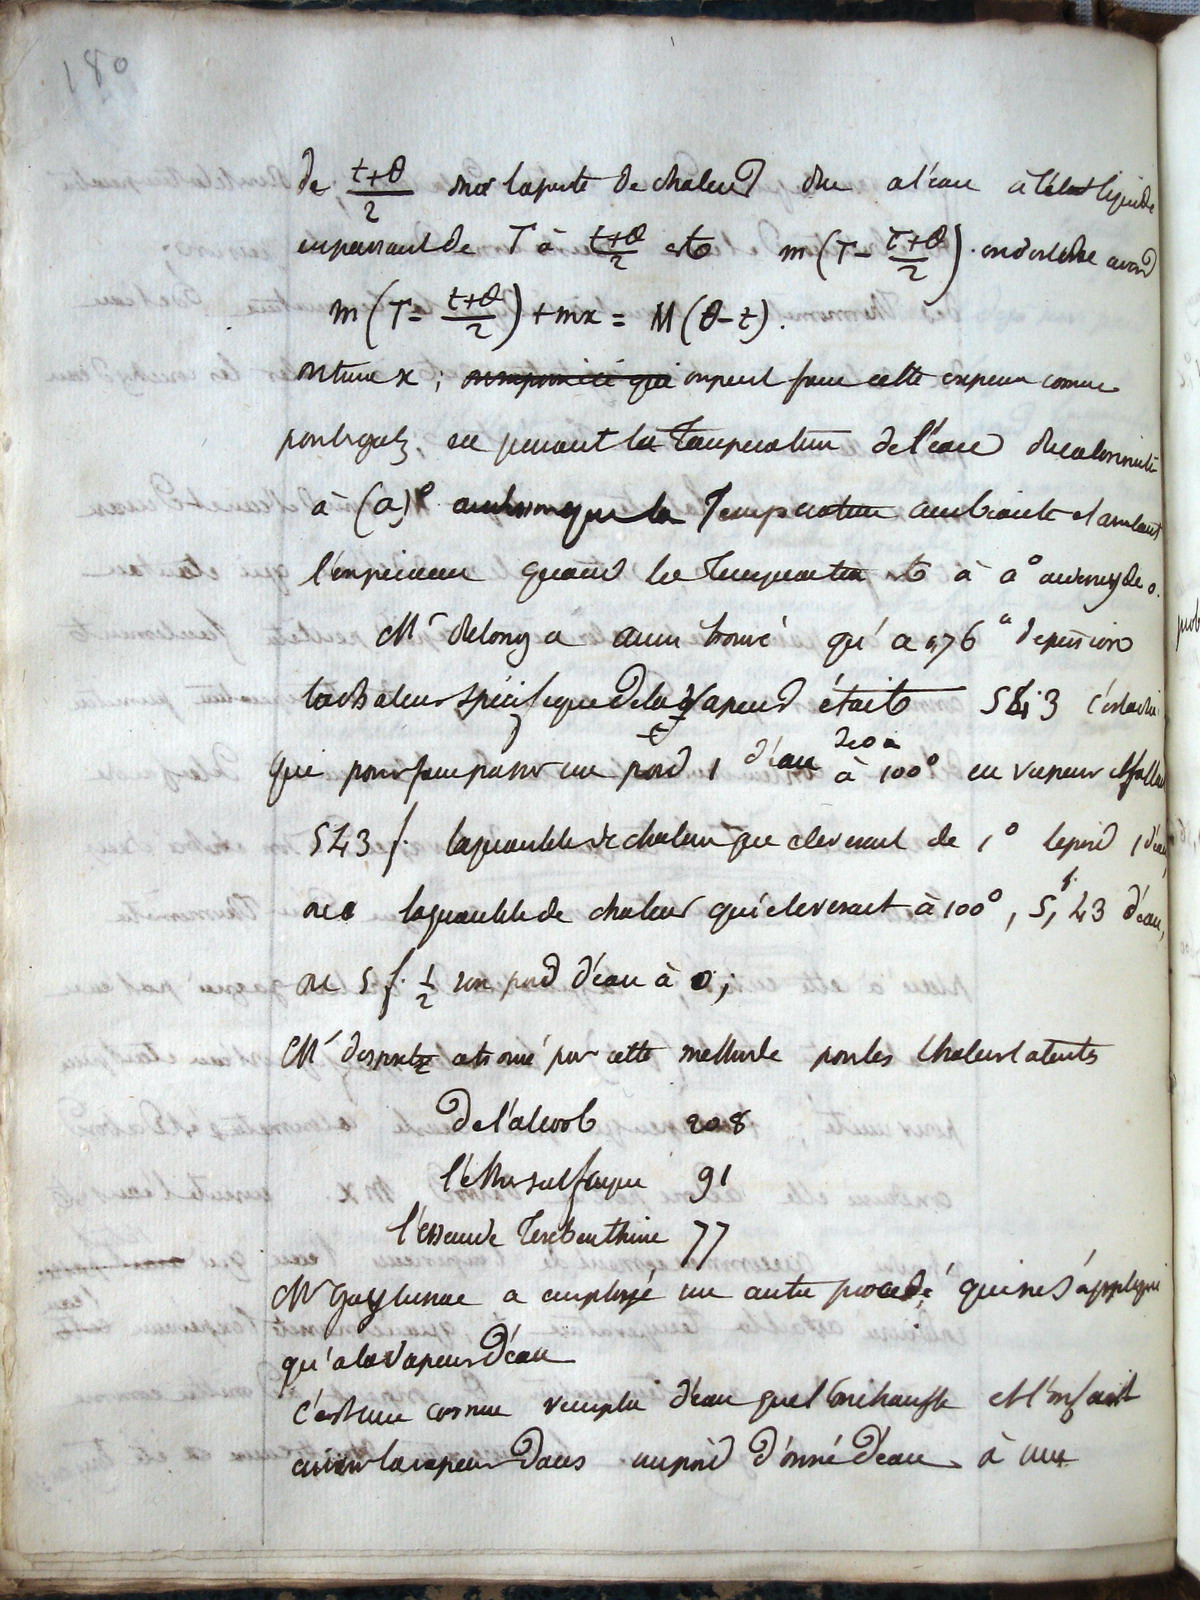 180
de (t+θ)/2 or la perte de chaleur due a l'eau à l'état liquide
en passant de T à (t+θ)/2 est m(T - (t+θ)/2). on doit donc avoir
m(T - (t+θ)/2) + mx = M(θ-t).
on tire x ; on peut faire cette experien comme
pour les gaz, en prenant la Temperature de l'eau du calorimetre
à (a)° au dessous que la Temperature ambiante et arretant
l'experience quand la Temperature est à a° au dessus de o.
Mr dulong a aussi trouvé qu'a 0,76 de pression
la chaleur specifique de la vapeur était 543 c'est a dire
que pour faire passer un poid 1 d'eau de 0 a à 100° en vapeur il fallait
543 f. la quantite de chaleur que eleverait de 1° le poid 1 d'eau,
ou la quantité de chaleur qui eleverait à 100°, 5,43 f. d'eau,
ou 5 f. 1/2 son poid d'eau à 0;
Mr despretz a trouvé par cette methode pour les chaleurs latentes
de l'alcool 208
l'ether sulfurique 91
l'essence de Terebenthine 77
Mr Gay lussac a employé un autre procedé qui ne s'applique
qu'a la vapeur d'eau
c'est une cornue remplie d'eau que l'on échauffe et l'on fait
arriver la vapeur dans un poid donné d'eau à une